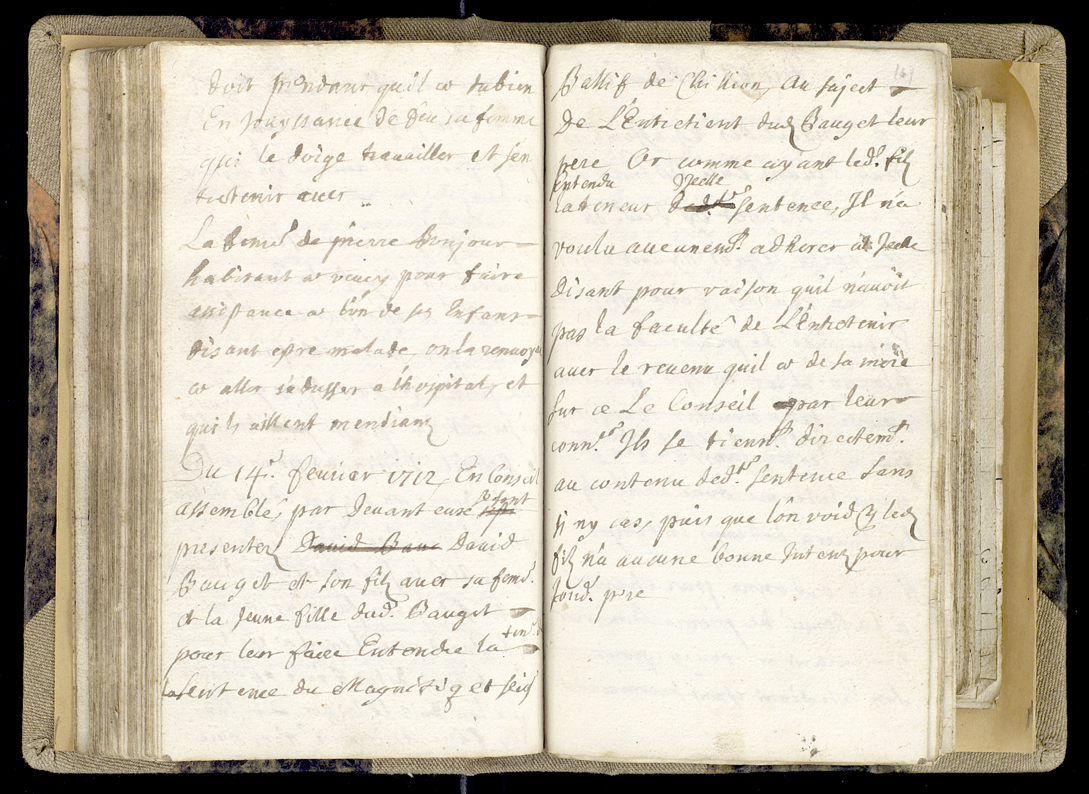 doit pendant quil a du bien
En Jouyssance de feu sa femme
qui le doige travailler et sen
tretenir avec
La fem.e de pierre Bonjour
habitant a vevey pour faire
assistance a l'ón de ses Enfans
disant estre malade, on la renvoyé
a aller sadresser a lhospital, et
quils aillent mendianz
Du 14.e fevrier 1712, En Conseil
assemblé, par Devant eux se sont
presentez David Banc David
Bauget et son filz avec sa fem.e
et la Jeune fille dud. Bauget
pour leur faire Entendre la ten.r
la Sentence du Magnifiq et Seig
161
Ballif de Chillion, Au suject
De L'Entietient dud Bauget leur
pere Or comme ayant led. filz
Entendu Jcelle
la teneur Ded.te sentence, Jl n'a
voulu aucunem.t adherer a Jcelle
disant pour raison quil n'avoit
pas la faculté de L'Entretenir
avec le revenu quil a de sa mére
sur ce Le Conseil par leur
conn.ce Jls se tienn.t directem.t
au contenu ded.te sentence sans
sy ny cas, puis que lón void q led
filz n'a aucune bonne Intenz pour
sond. pere